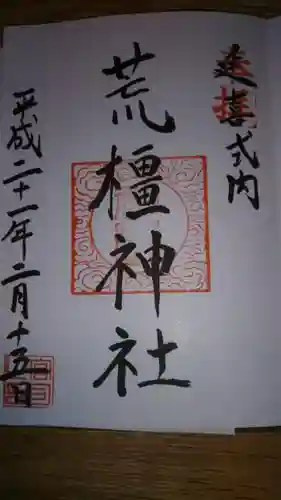 延喜式内
荒橿神社
平成二十一年二月十五日